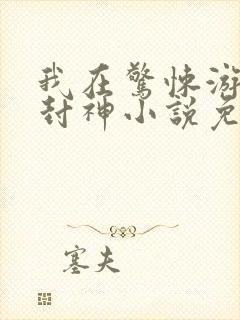 我在驚悚游
封神小說免
塞夫